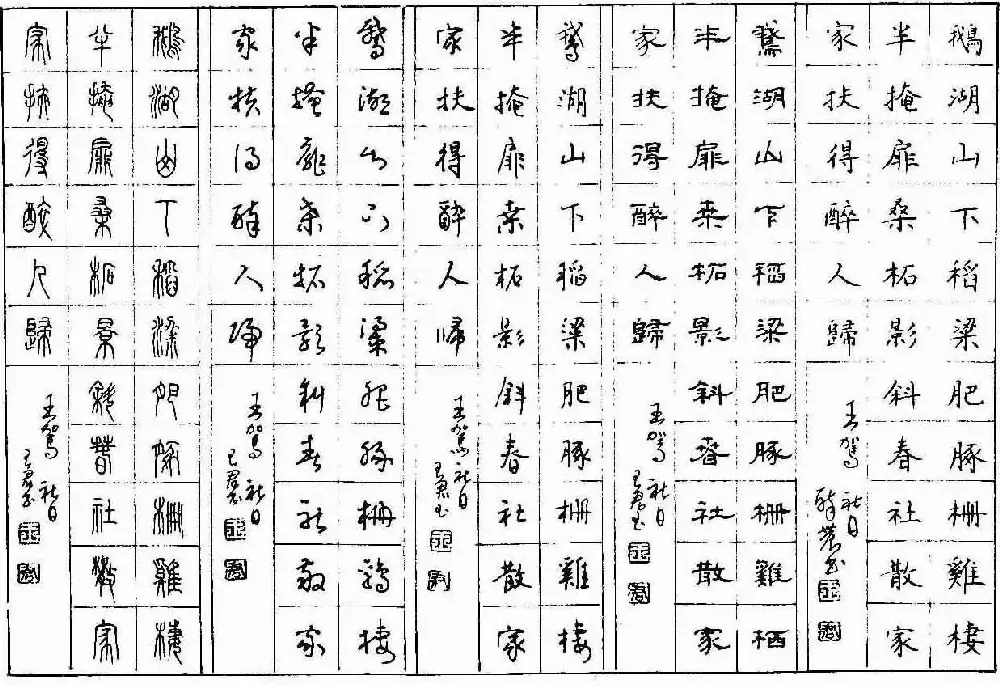 鵝湖山下稻梁肥豚柵雞棲
半掩扉桑柘影斜春社散家
家扶得醉人歸
王駕 社日
鵞湖山下稻梁肥豚柵雞栖
半掩扉桑柘影斜春社散家
家扶得醉人歸
王駕 社日
鵞湖山下稻梁肥豚柵雞棲
半掩扉桑柘影斜春社散家
家扶得醉人歸
王駕 社日
鵞湖山下稻梁肥豚柵鷄棲
半掩扉桑柘影斜春社散家
家扶得醉人歸
王駕 社日
鵝湖山下稻梁肥豚柵雞棲
半掩扉桑柘影斜春社散家
家扶得醉人歸
王駕 社日